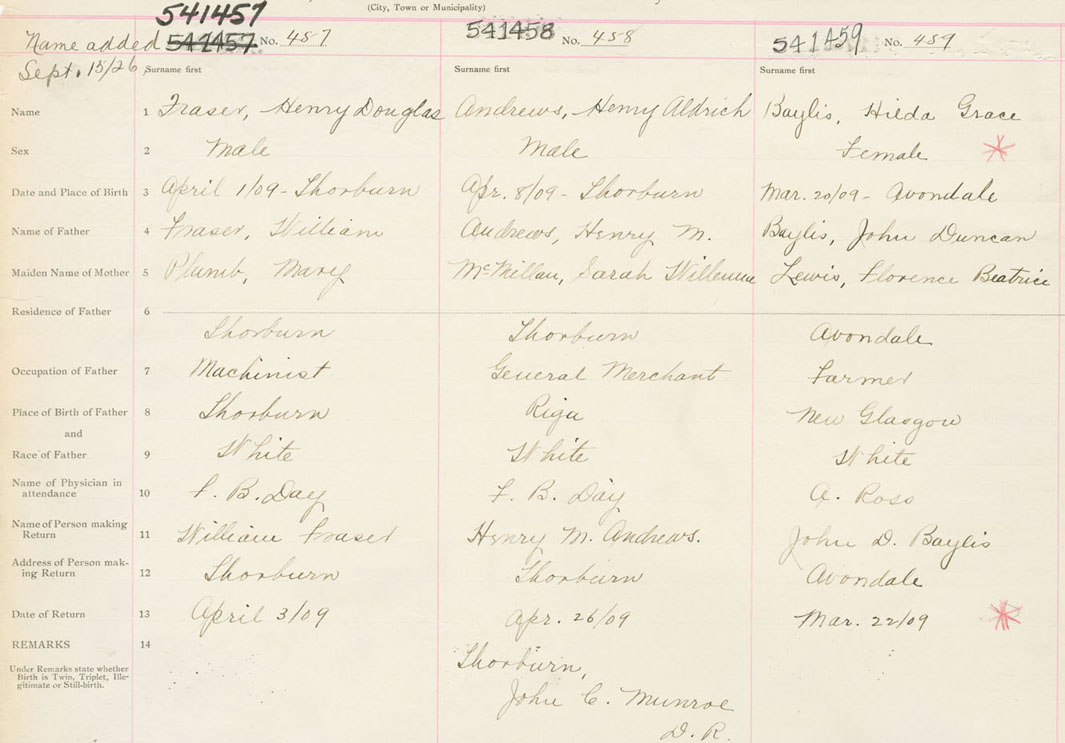 (City, Town or Municipality)
541457
Name added 541457 No. 457 541458 No. 458 541459 No. 459
Sept. 15/26 Surname first Surname first Surname first
Name 1 Fraser, Henry Douglas Andrews, Henry Aldrich Baylis, Hilda Grace
Sex 2 Male Male Female
Date and Place of Birth 3 April 1/09 - Thorburn Apr. 8/09 - Thorburn Mar. 20/09 - Avondale
Name of Father 4 Fraser, William Andrews, Henry M. Baylis, John Duncan
Maiden Name of Mother 5 Plumb, Mary McMillan, Sarah Willemina Lewis, Florence Beatrice
Residence of Father 6
Thorburn Thorburn Avondale
Occupation of Father 7 Machinist General Merchant Farmer
Place of Birth of Father 8 Thorburn Riga New Glasgow
and
Race of Father 9 White White White
Name of Physician in
attendance 10 F. B. Day F. B. Day A. Ross
Name of Person making
Return 11 William Fraser Henry M. Andrews. John D. Baylis
Address of Person mak-
ing Return 12 Thorburn Thorburn Avondale
Date of Return 13 April 3/09 Apr. 26/09 Mar. 22/09
REMARKS 14
Under Remarks state whether
Birth is Twin, Triplet, Ille-
gitimate or Still-birth.
Thorburn,
John C. Munroe
D. R.